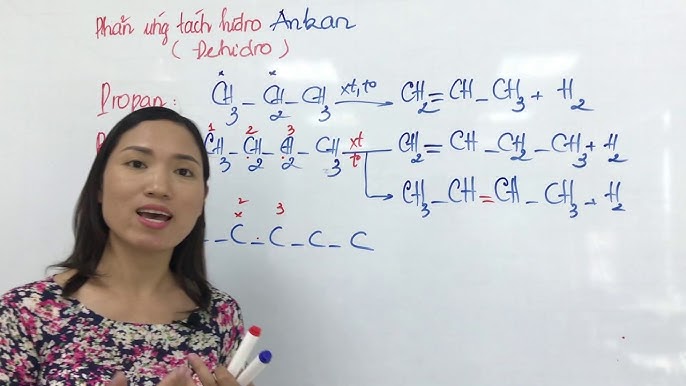 Phản ứng tách hidro Ankan
( Dehidro )
Propan : CH3 - CH2 - CH3 xt, to → CH2 = CH - CH3 + H2
1 2 3
CH3 - CH2 - CH2 - CH3 xt to → CH2 = CH - CH2 - CH3 + H2
→ CH3 - CH = CH - CH3 + H2
2 3
x
- C - C - C - C